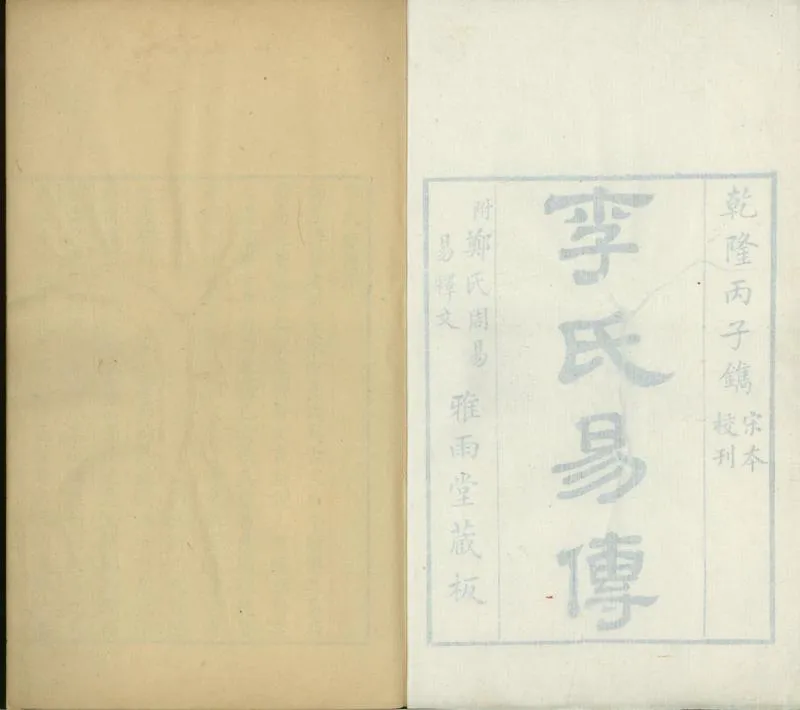 乾隆丙子鐫 宋本校刊
李氏易傳
附鄭氏周易
易釋文
雅雨堂藏板